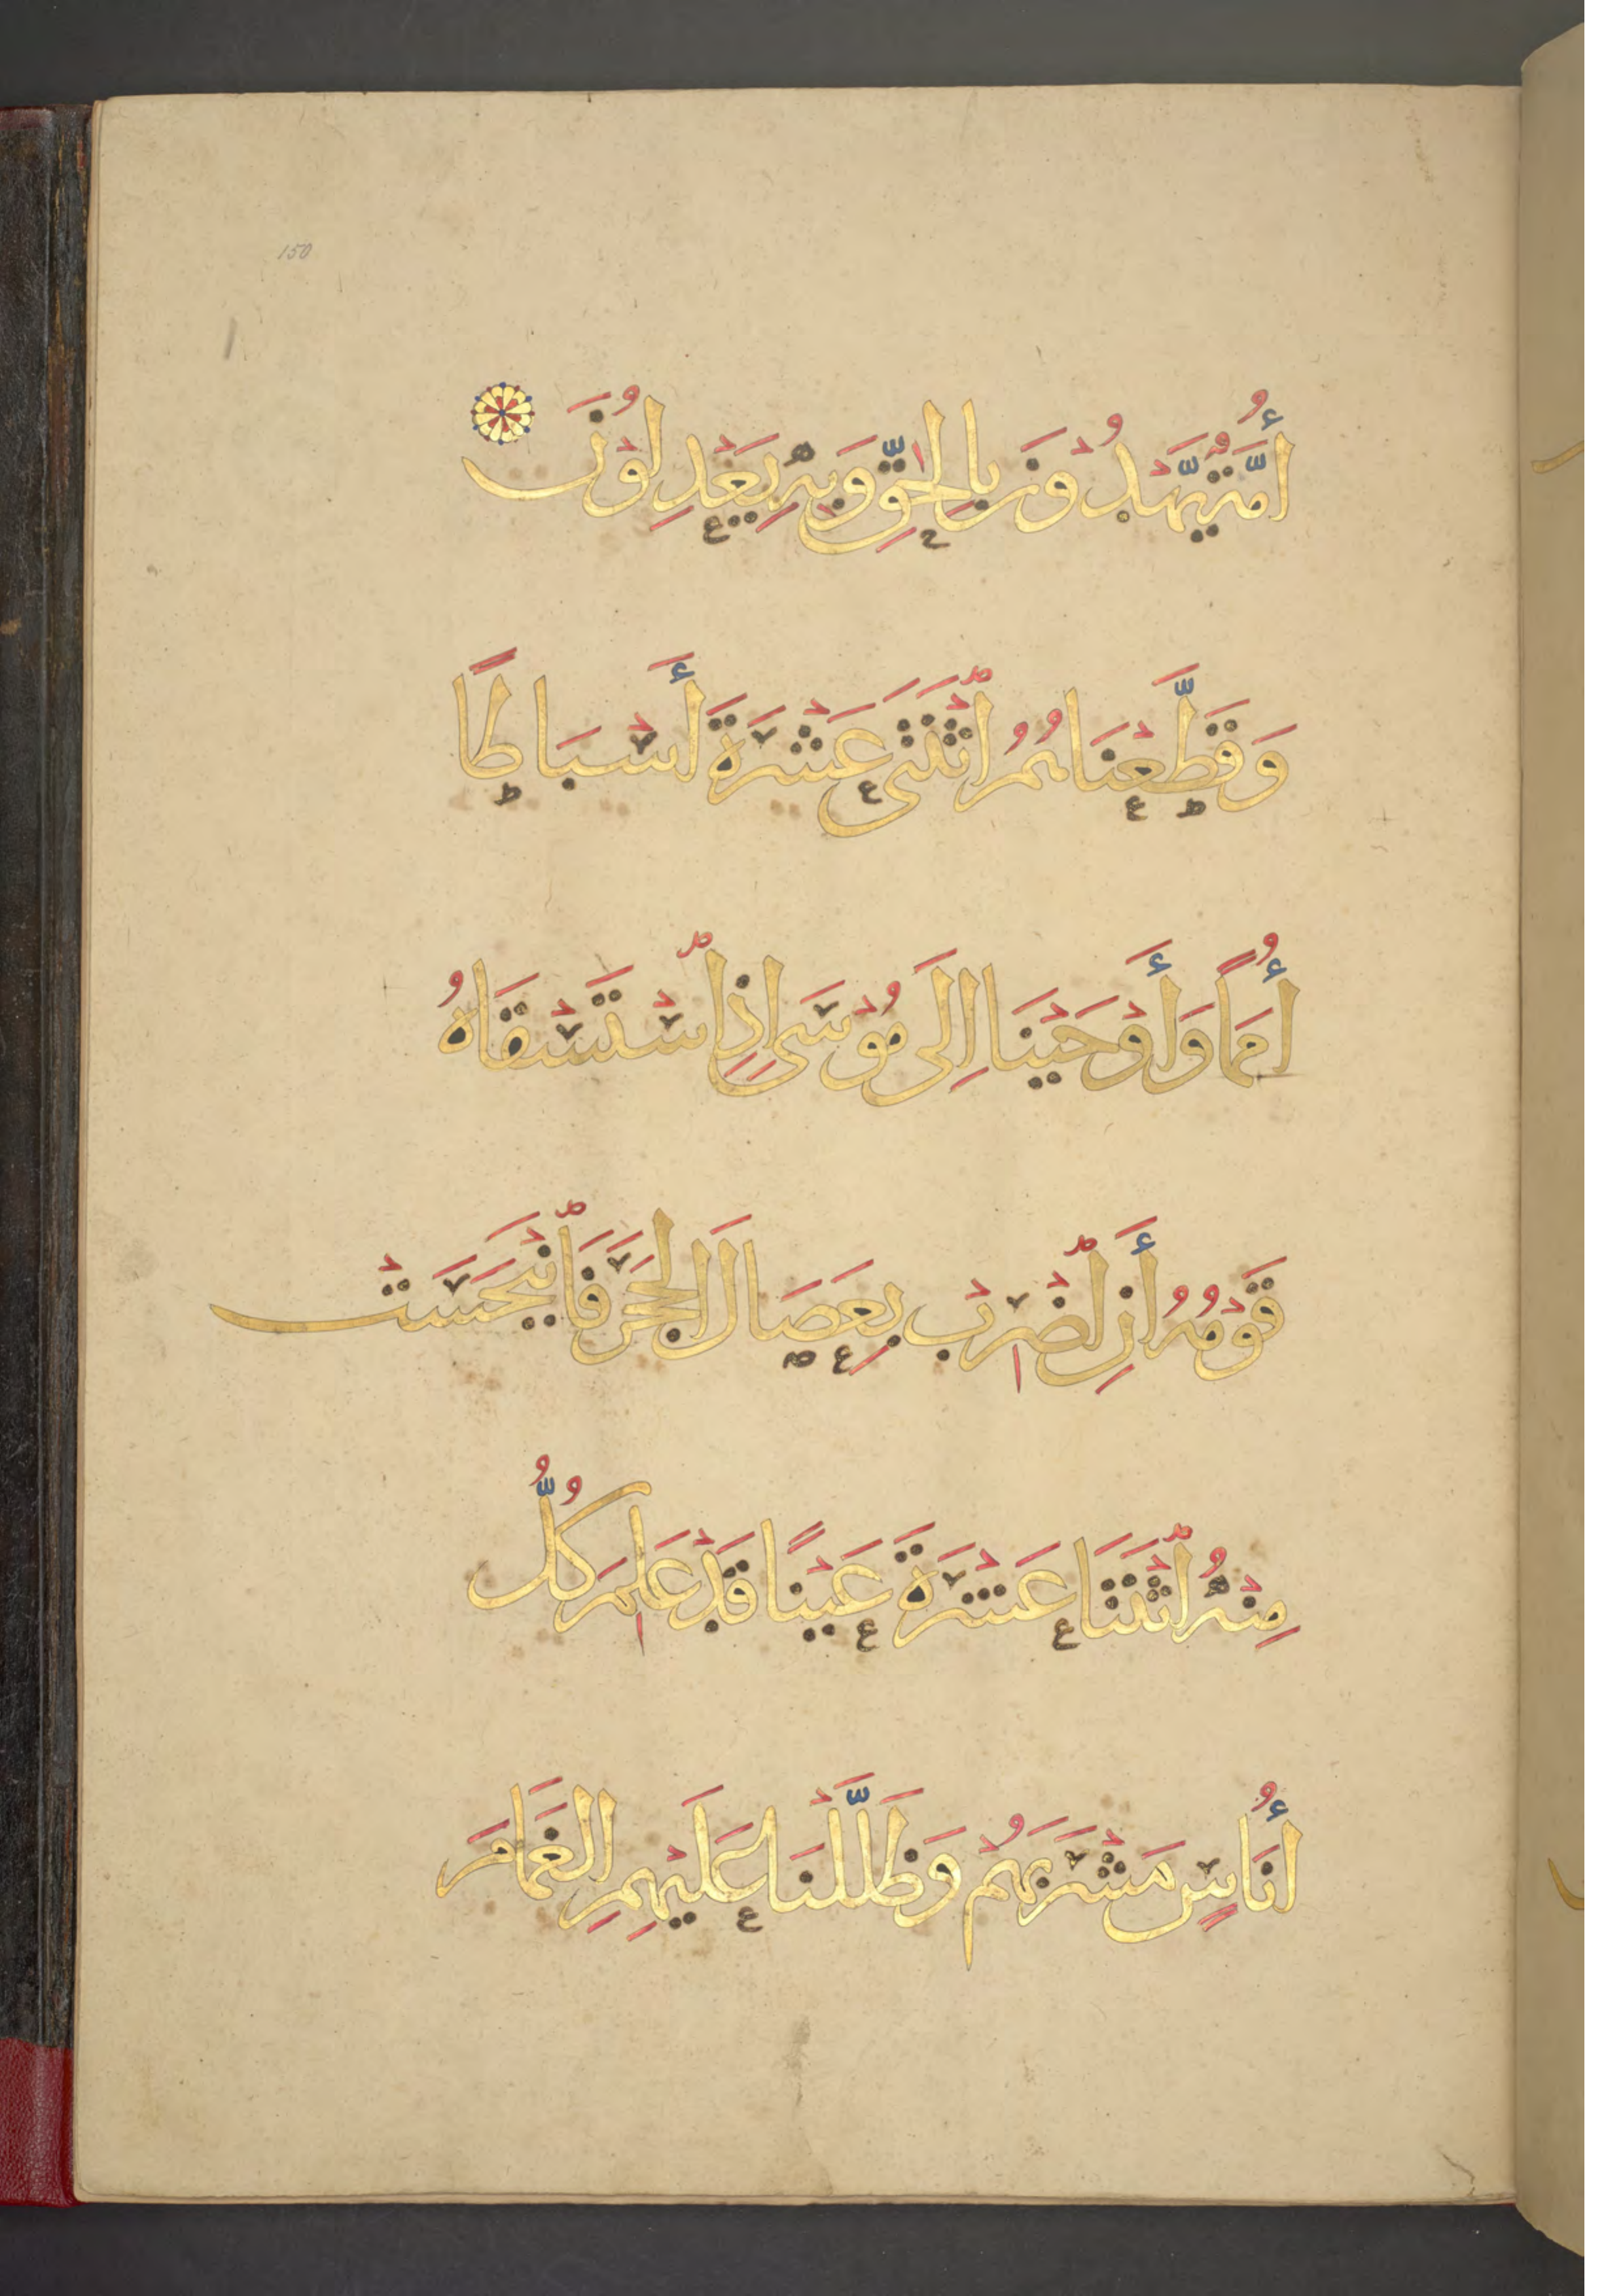 150
أُمَّةٌ يَهْدُونَ بِالْحَقِّ وَبِهِ يَعْدِلُونَ
وَقَطَّعْنَاهُمُ اثْنَتَيْ عَشْرَةَ أَسْبَاطًا
أُمَمًا وَأَوْحَيْنَا إِلَى مُوسَى إِذِ اسْتَسْقَاهُ
قَوْمُهُ أَنِ اضْرِبْ بِعَصَاكَ الْحَجَرَ فَانْبَجَسَتْ
مِنْهُ اثْنَتَا عَشْرَةَ عَيْنًا قَدْ عَلِمَ كُلُّ
أُنَاسٍ مَشْرَبَهُمْ وَظَلَّلْنَا عَلَيْهِمِ الْغَمَامَ